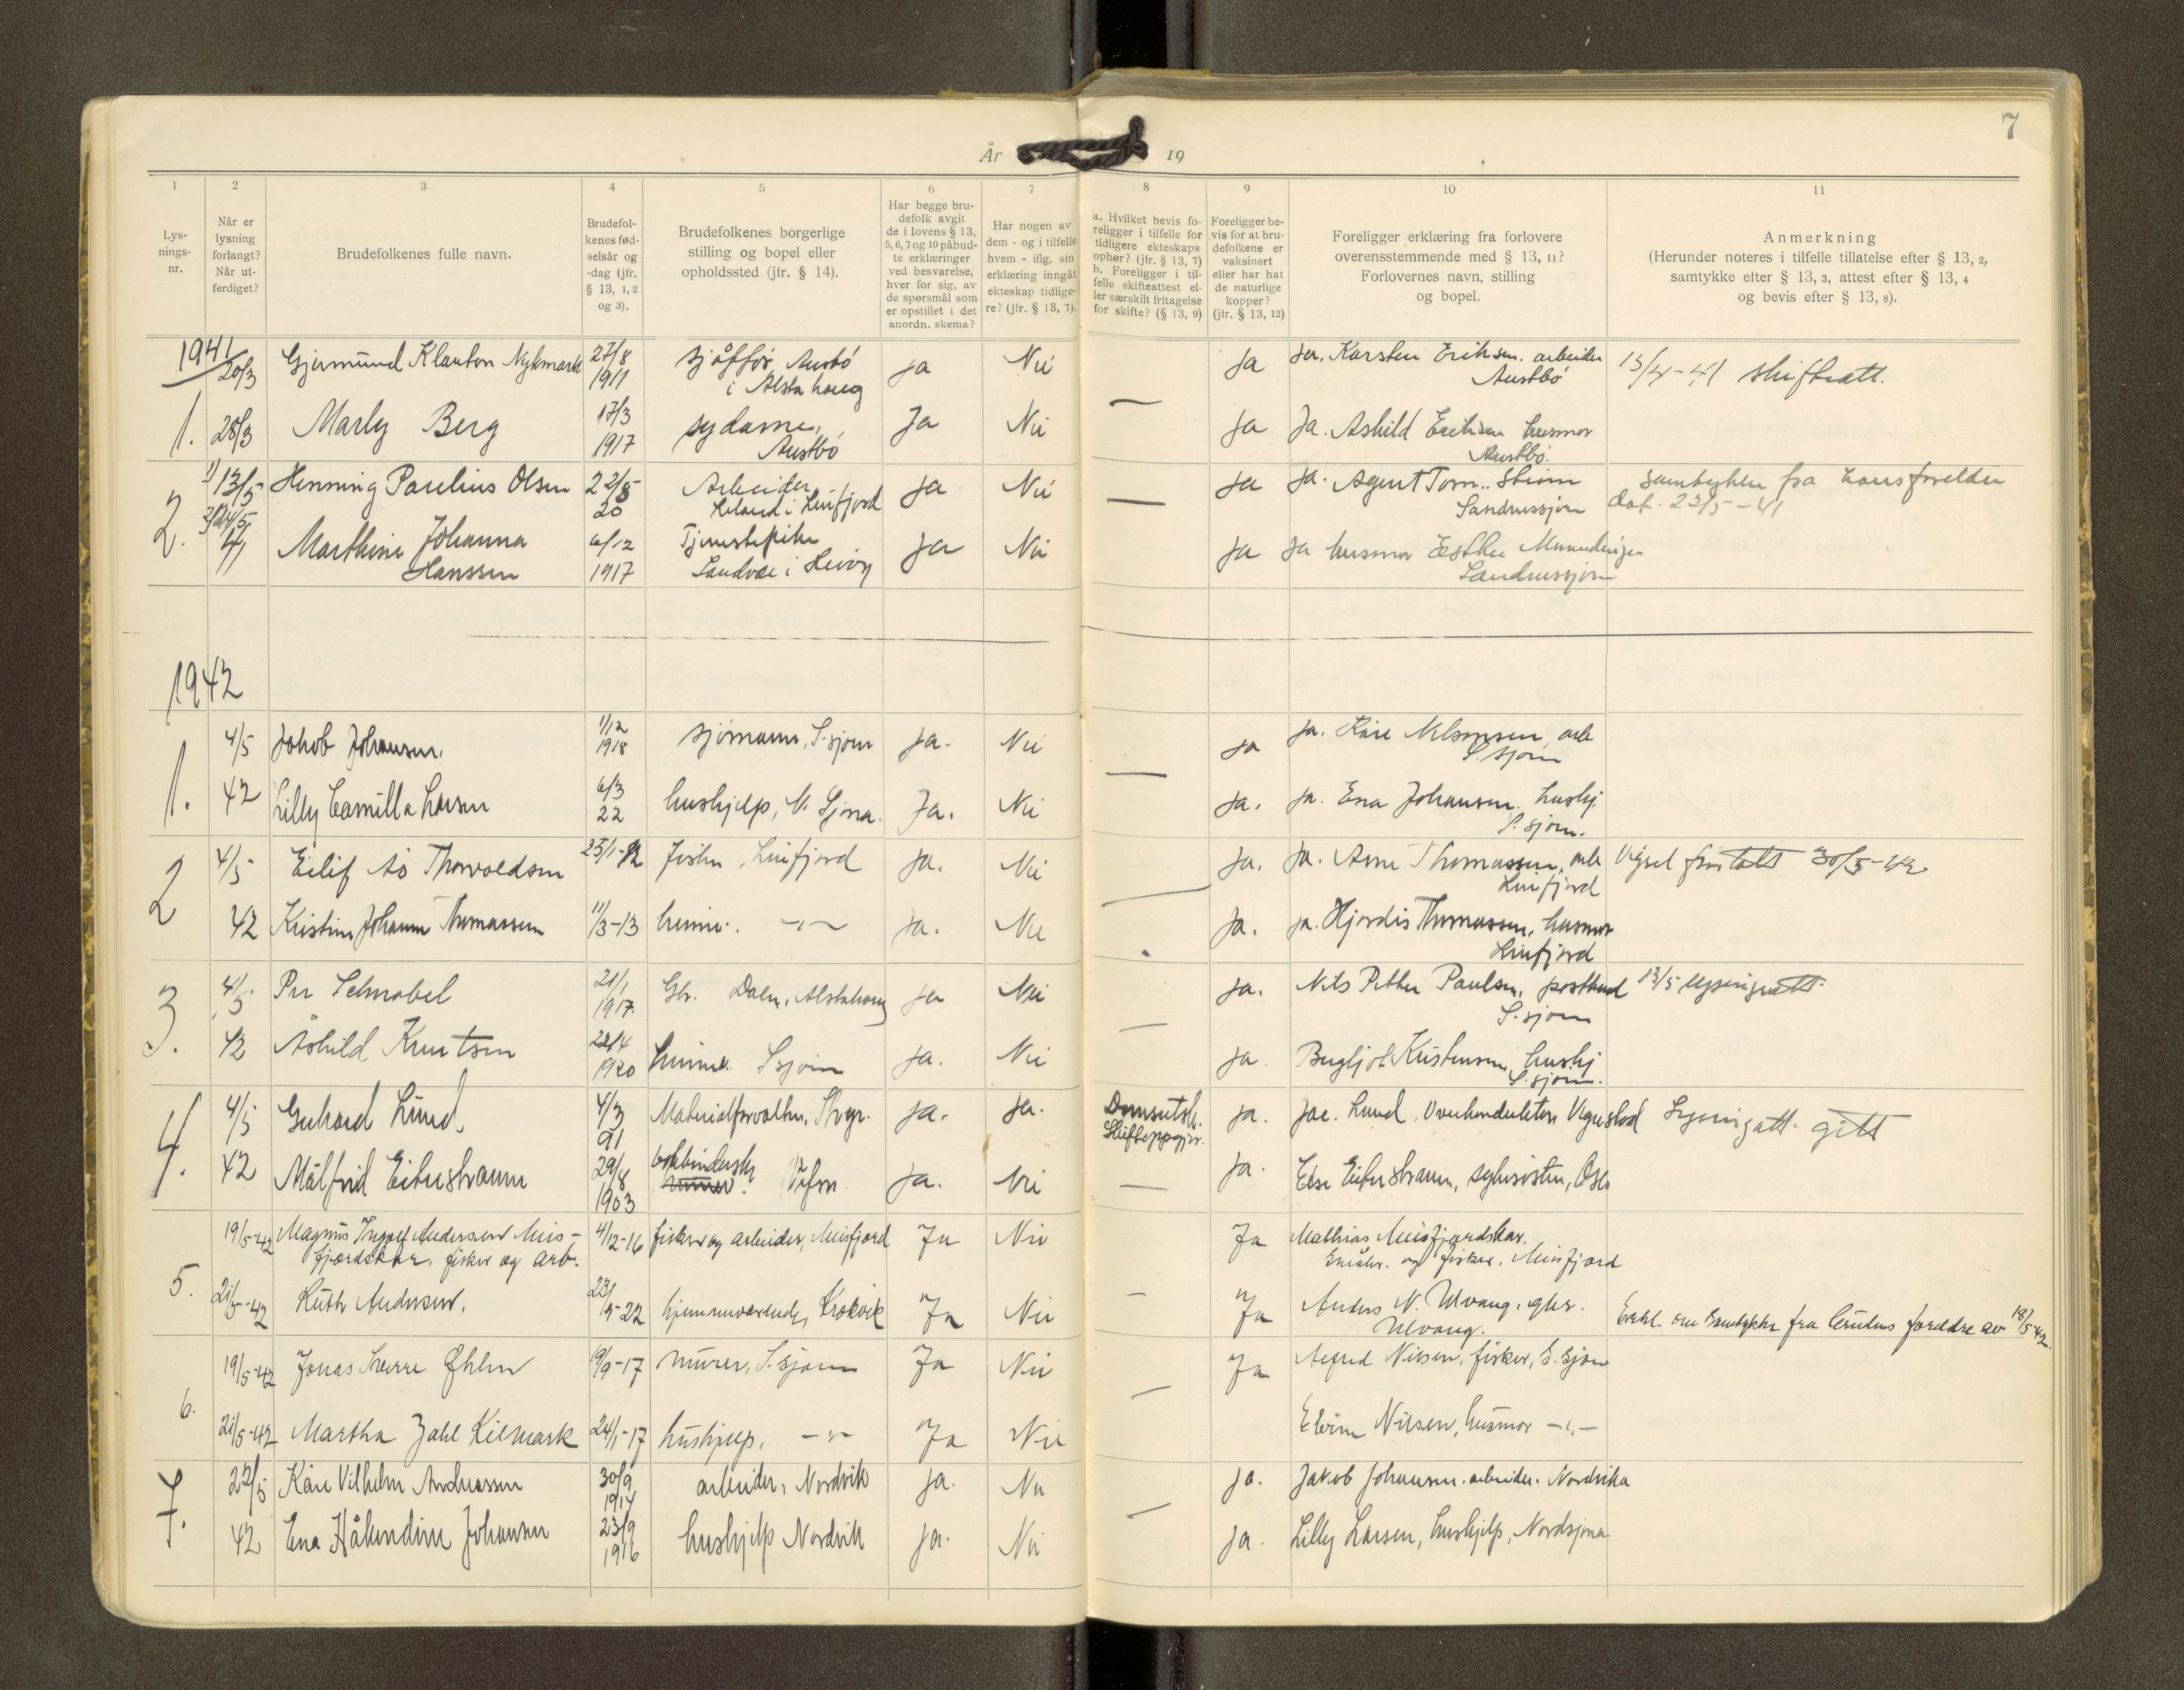 7
År 19
1 2 3 4 5 6 7 8 9 10 11
Lys-
nings-
nr.
Når er
lysning
forlangt?
Når ut-
ferdiget?
Brudefolkenes fulle navn.
Brudefol-
kenes fød-
selsår og
-dag (jfr.
§ 13, 1, 2
og 3).
Brudefolkenes borgerlige
stilling og bopel eller
opholdssted (jfr. § 14).
Har begge bru-
defolk avgit
de i lovens § 13,
5, 6, 7 og 10 påbud-
te erklæringer
ved besvarelse,
hver for sig, av
de spørsmål som
er opstillet i det
anordn. skema?
Har nogen av
dem - og i tilfelle
hvem - iflg. sin
erklæring inngått
ekteskap tidlige-
re? (jfr. § 13, 7).
a. Hvilket bevis fo-
religger i tilfelle for
tidligere ekteskaps
ophør? (jfr. § 13, 7)
b. Foreligger i til-
felle skifteattest el-
ler særskilt fritagelse
for skifte? (§ 13, 9)
Foreligger be-
vis for at bru-
defolkene er
vaksinert
eller har hat
de naturlige
kopper?
(jfr. § 13, 12)
Foreligger erklæring fra forlovere
overensstemmende med § 13, 11?
Forlovernes navn, stilling
og bopel.
Anmerkning
(Herunder noteres i tilfelle tillatelse efter § 13, 2,
samtykke efter § 13, 3, attest efter § 13, 4
og bevis efter § 13, 8).
1941
20/3 Nykmark 27/8 1911 sjåffør Austbø i Alstahoug ja Nei ja ja. Karsten Eriksen. arbeider Austbø 15/4-41 skifteatt.
1. 28/3 Marly Berg 17/3 1917 sydame, Austbø Ja Nei — ja Ja. Ashild Eriksen husmor Austbø.
2. 1) 13/5 Henning Paulius Olsen 22/8 20 Arbeider Leland i Leirfjord ja Nei — ja ja. Agent Tom.. Strøm Sandnessjøen samtykke fra hans forelder dat. 23/5-41
2) 24/5 41 Marthine Johanna Hanssen 6/12 1917 Tjenestepike Sandvær i Herøy ja Nei ja ja husmor Esther Sandnessjøen
1942
1. 4/5 Jakob Johansen. 1/12 1918 sjømann, S.sjøen ja. Nei — ja ja. Kåre arb S.sjøen
42 Lilly Camilla Larsen 6/3 22 hushjelp, N. Sjona. Ja. Nei ja. ja. Ena Johansen. hushj. S.sjøen.
2 4/5 Eilif Ås Thorvaldsen 25/1-12 fisker, Leirfjord ja. Nei — ja. ja. Arne Thomassen, arb Leirfjord Vigsel foretatt 30/5-42
42 Kristine Johanne Thomassen 11/3-13 heime. -"- ja. Nei ja. ja. Hjørdis Thomassen, husmor Leirfjord
3. 4/5 Per Schnabel 21/1 1917. Gbr. Dalen, Alstahaug ja Nei — ja. Nils Petter Paulsen, postbud S.sjøen 13/5 lysningsatt.
42 Åshild Knutsen 22/4 1920 heime. S.sjøen ja. Nei ja. Bergljot Kristensen, hushj S.sjøen.
4. 4/5 Gerhard Lund. 4/3 91 Materialforvalter, ja. ja. Domsutskr. Skifteoppgjør. ja. Jac. Lund, Overkonduktør Lysningatt. gitt
42 Målfrid 29/8 1903 bokbinderske Vefsn ja. Nei — ja. Oslo
5. 19/5-42 Magnus Ingolf Andersen Meis-
fjordskar, fisker og arb. 4/12-16 fisker og arbeider, Meisfjord Ja Nei Ja Mathias Meisfjordskar, og fisker, Meisfjord
21/5-42 Ruth Andersen. 23/5-22 hjemmeværende, Krokvik Ja Nei - Ja Anders N. Ulvang, gbr. Ulvang. Erkl. om Samtykke fra brudens foreldre av 18/5-42.
6. 19/5-42 Jonas Sverre Øhlen 19/9-17 murer, S.sjøen Ja Nei — Ja Alfred Nilsen, fisker, S.Sjøen
21/5-42 Martha Zahl Kilmark 24/1-17 hushjelp, -"- Ja Nei Nilsen, husmor -"-
7. 22/5 Kåre Vilhelm Andreassen 30/9 1914 arbeider, Nordvik ja. Nei — ja. Jakob Johansen. arbeider. Nordvika
42 Ena Håkondine Johansen 23/9 1916 hushjelp Nordvik ja. Nei ja. Lilly Larsen, hushjelp, Nordsjona